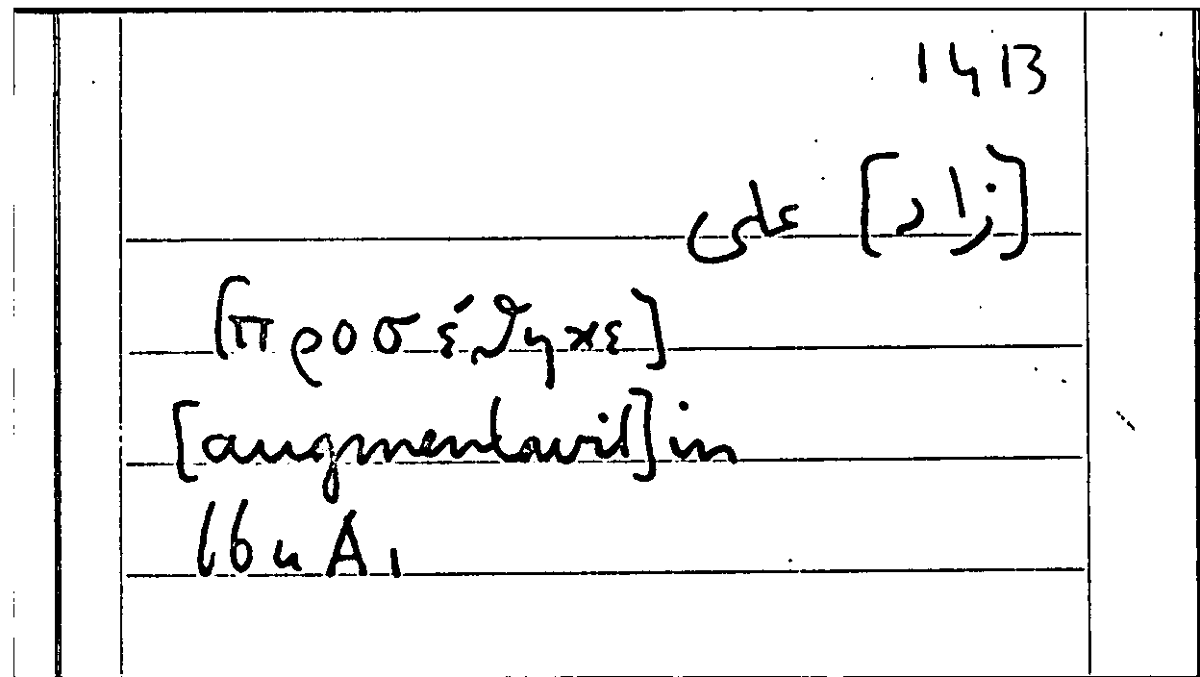 1413
[زاد] على
[προσέθηκε]
[augmentavit] in
16 u A 1